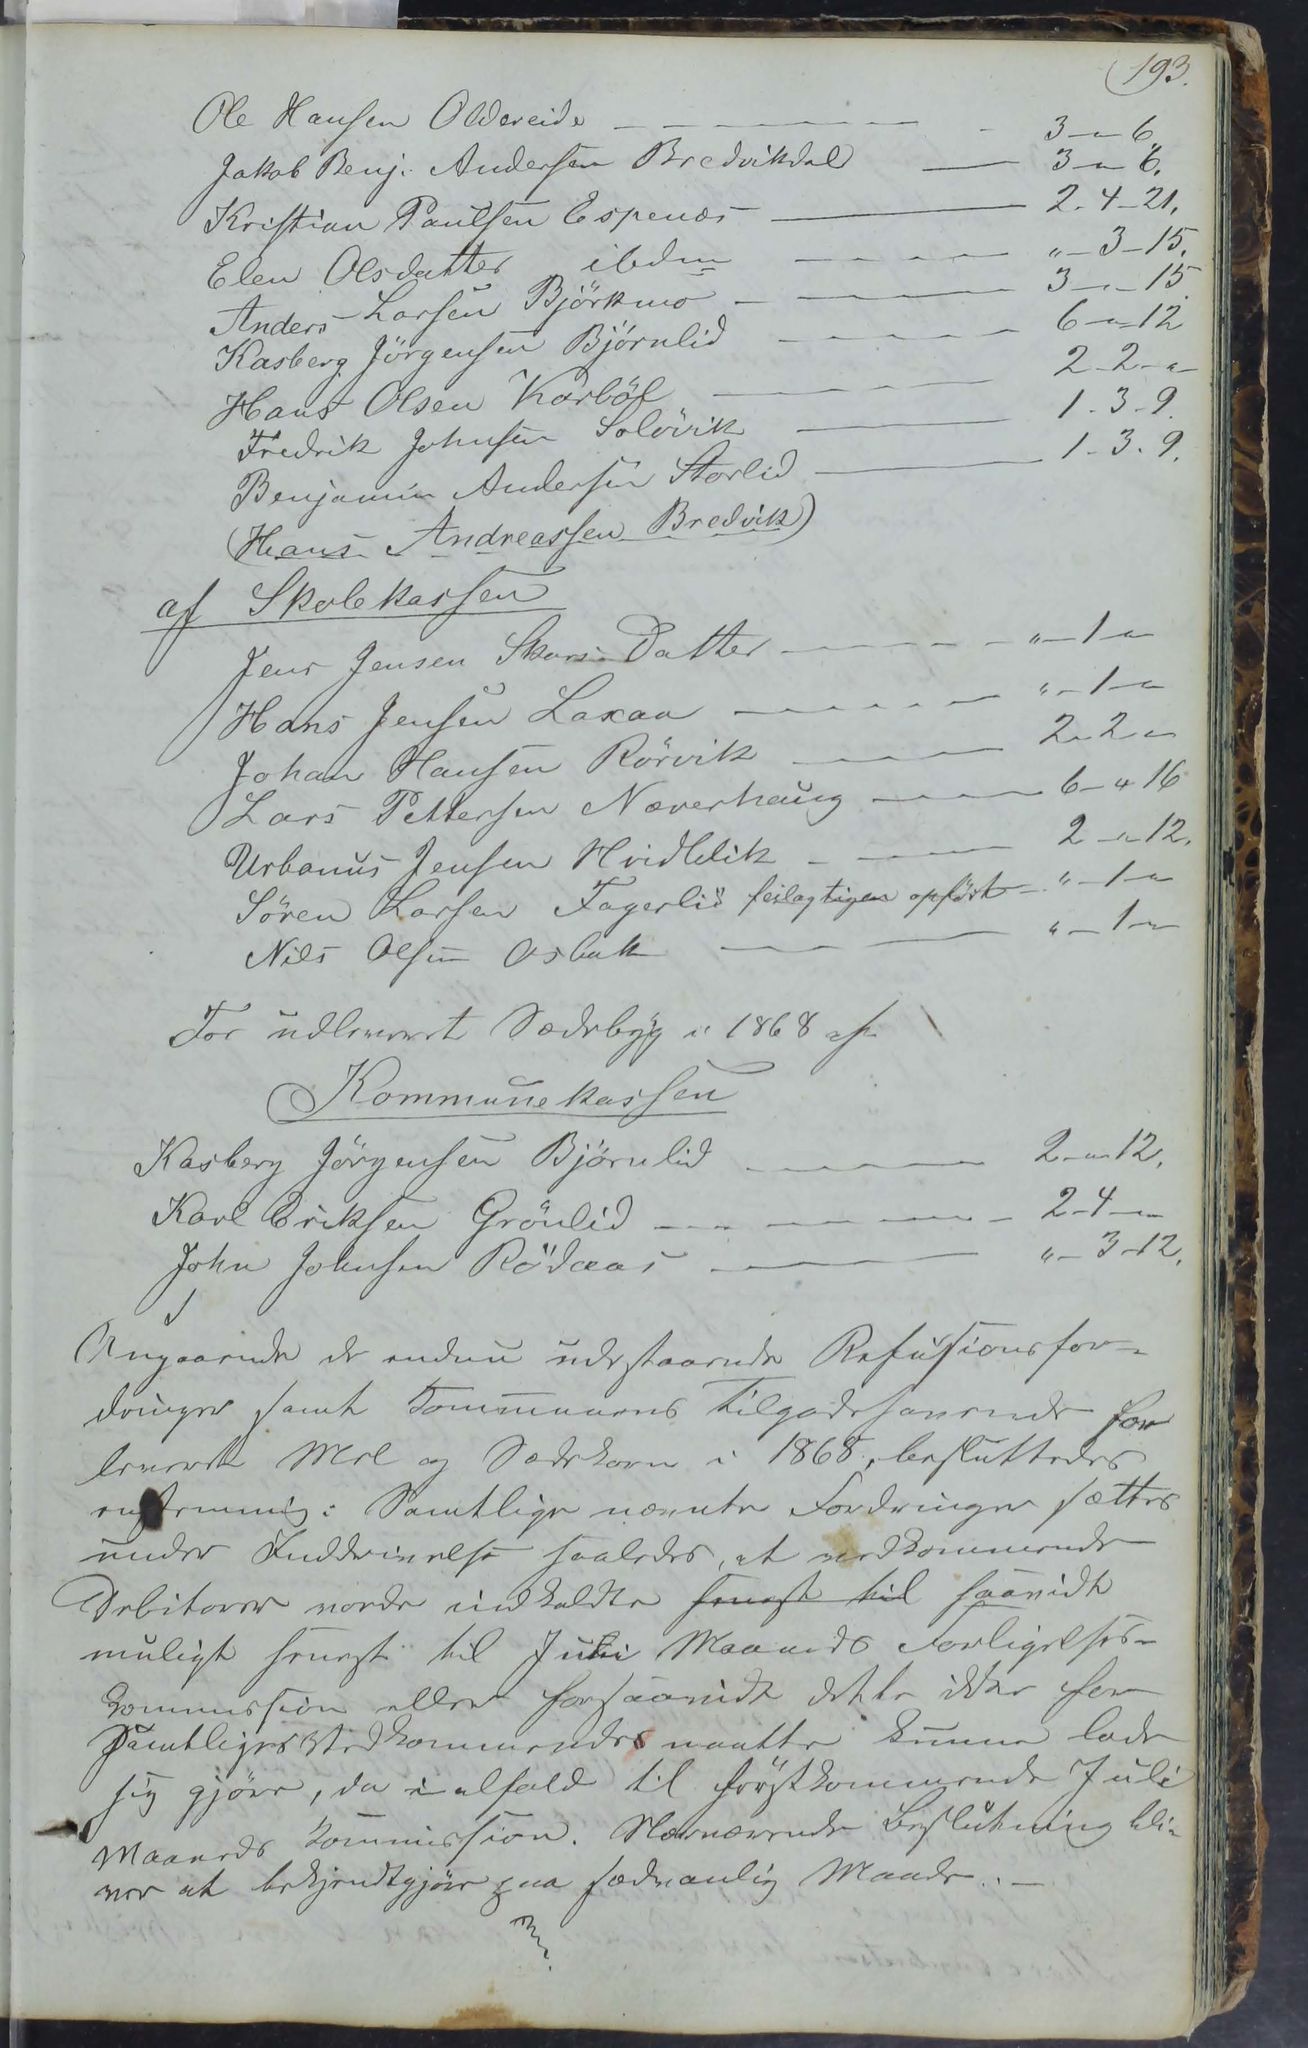 193.
Ole Hansen Oldereide — — — — 3 - " - 6.
Jakob Benj. Andersen Bredvikdal — 3 - " - 6.
Kristian Paulsen Espenæs — 2 - 4 - 21.
Elen Olsdatter ibdm — — — — " - 3 - 15.
Anders Larsen Björkmo — — — — 3 - " - 15
Kasberg Jörgensen Björnlid — — — — 6 - " - 12
Hans Olsen Karböl — — — — 2 - 2 - "
Fredrik Johnsen Solövik — — 1 - 3 - 9.
Benjamin Andersen Storlid — 1 - 3 - 9.
(Hans Andreassen Bredvik)
af Skolekassen
Jens Jensen Skars Datter — — — — " - 1 - "
Hans Jensen Laxaa — — — — " - 1 - "
Johan Hansen Rörvik — — — 2 - 2 - "
Lars Pettersen Næverhaug — — — 6 - " 16
Urbanus Jensen Hvidblik — — — 2 - " - 12.
Sören Larsen Fagerlid feilagtigen opfört — " - 1 - "
Nils Olsen Osbak — — — " - 1 - "
For udleveret Sædebyg i 1868 af
Kommunekassen
Kasberg Jörgensen Björnlid — — — 2 - " - 12.
Karl Eriksen Grönlid — — — — 2 - 4 - "
John Johnsen Rödaas — — — " - 3 - 12.
Angaaende de endnu udestaaende Refusionsfor-
dringer samt Kommunens Tilgodehavende for
leveret Mel og Sædekorn i 1868, besluttedes
enstemmig: Samtlige nævnte Fordringer sættes
under Inddrivelse saaledes, at vedkommende
Debitorer vorde indkaldte senest til saavidt
muligt senest til Juli Maaneds Forligelses-
kommission eller forsaavidt dette ikke for
Samtliges Vedkommendes maatte kunne lade
sig gjöre, da i alfald til förstkommende Juli
Maaneds Kommission. Nærværende Beslutning bli-
ver at bekjendtgjöre paa sædvanlig Maade. —